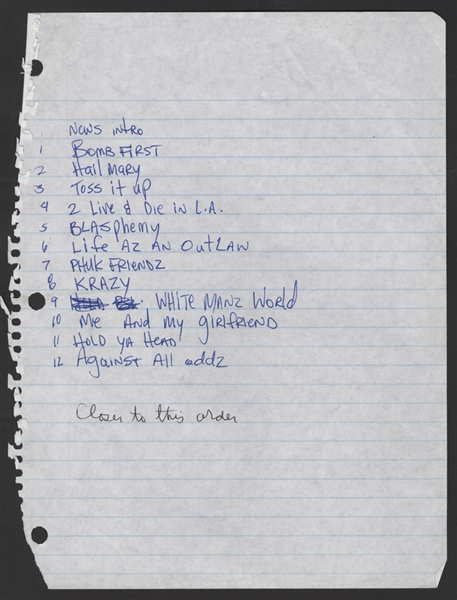 News intro
1 Bomb First
2 Hail Mary
3 Toss it up
4 2 Live & Die in L.A.
5 Blasphemy
6 Life Az An Outlaw
7 Phuk Friendz
8 Krazy
9 White Manz World
10 Me And My Girlfriend
11 Hold Ya Head
12 Against All oddz
Closer to this order